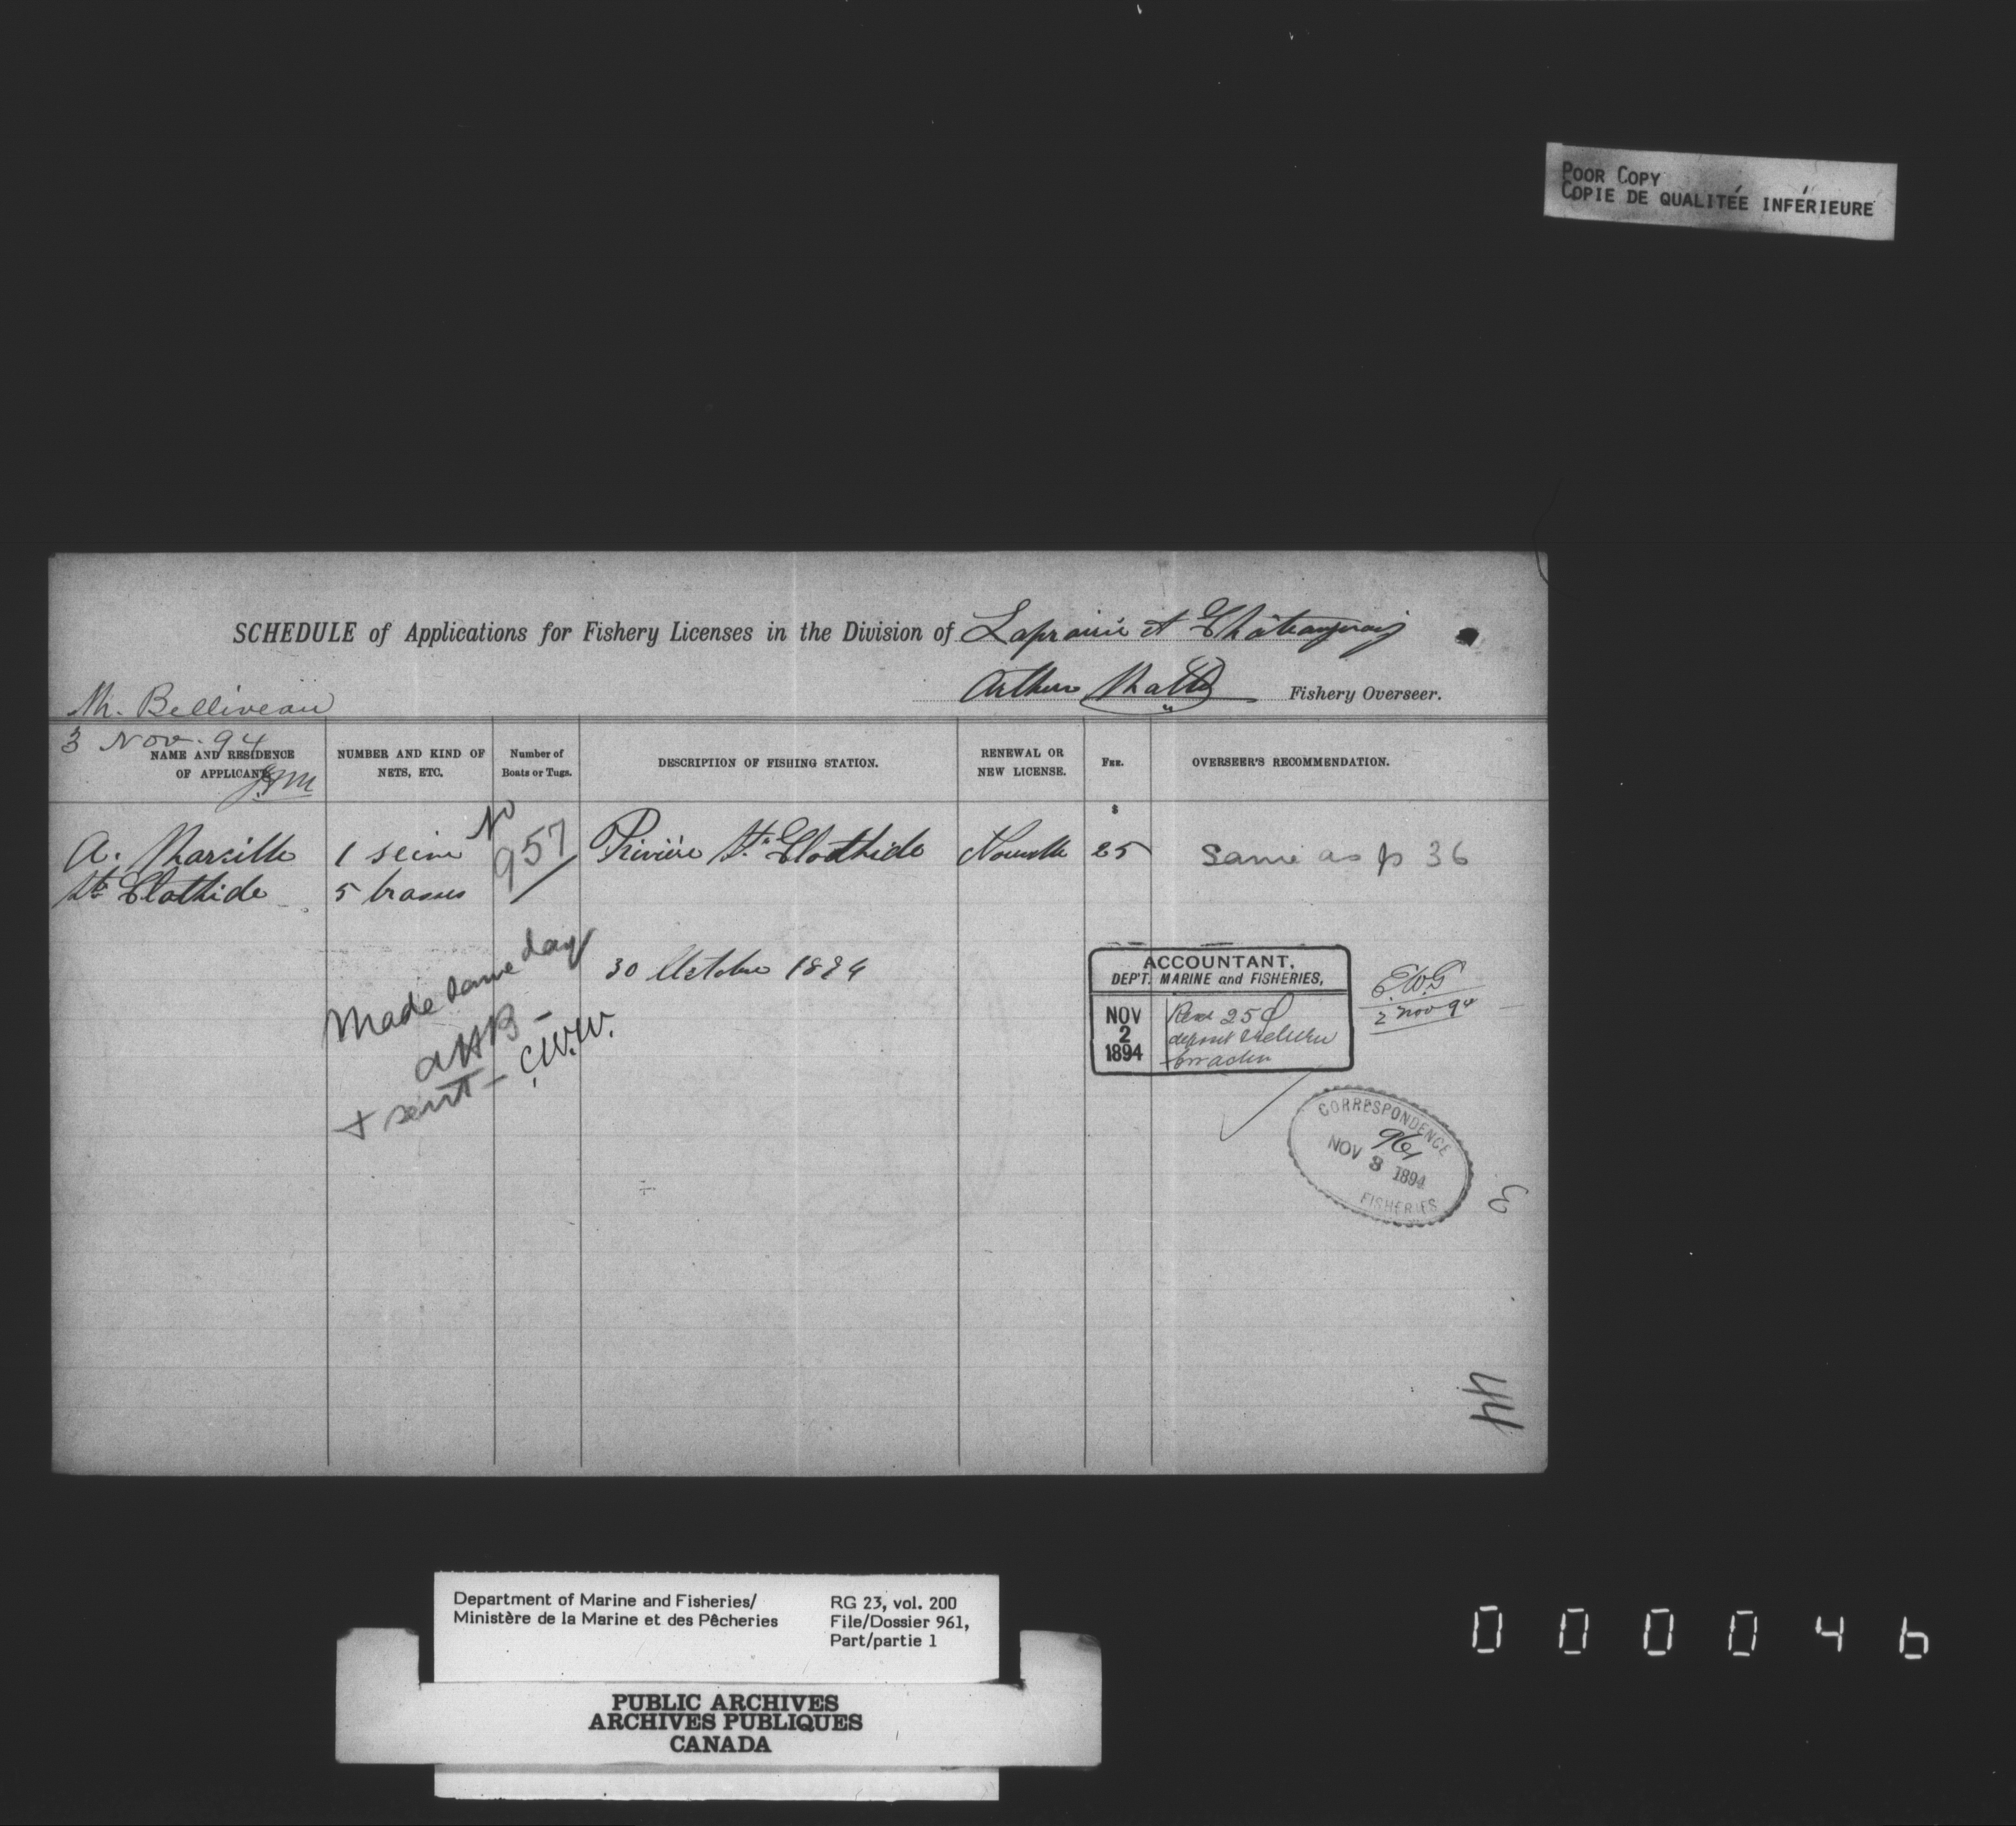 POOR COPY
COPIE DE QUALITÉE INFÉRIEURE
SCHEDULE of Applications for Fishery Licenses in the Division of Laprairie et Châteauguay
Arthur Fishery Overseer.
Mr. Belliveau
3 Nov. 94
NAME AND RESIDENCE OF APPLICANT.
NUMBER AND KIND OF NETS, ETC.
Number of Boats or Tugs.
DESCRIPTION OF FISHING STATION.
RENEWAL OR NEW LICENSE.
FEE.
OVERSEER'S RECOMMENDATION.
$
No
957
A. Marcille 1 seine Rivière Ste Clothide Nouvelle 25 Same as p 36
Ste Clothide 5 brasses
30 Octobre 1894
Made same day
AHB –
+ sent – C.W.W.
ACCOUNTANT,
DEP'T. MARINE and FISHERIES,
NOV
2
1894
Recd 25¢
deposit
E.W.G
2 Nov 94
CORRESPONDENCE
961
NOV 3 1894
FISHERIES
3
44
Department of Marine and Fisheries/
Ministère de la Marine et des Pêcheries
RG 23, vol. 200
File/Dossier 961,
Part/partie 1
PUBLIC ARCHIVES
ARCHIVES PUBLIQUES
CANADA
000046